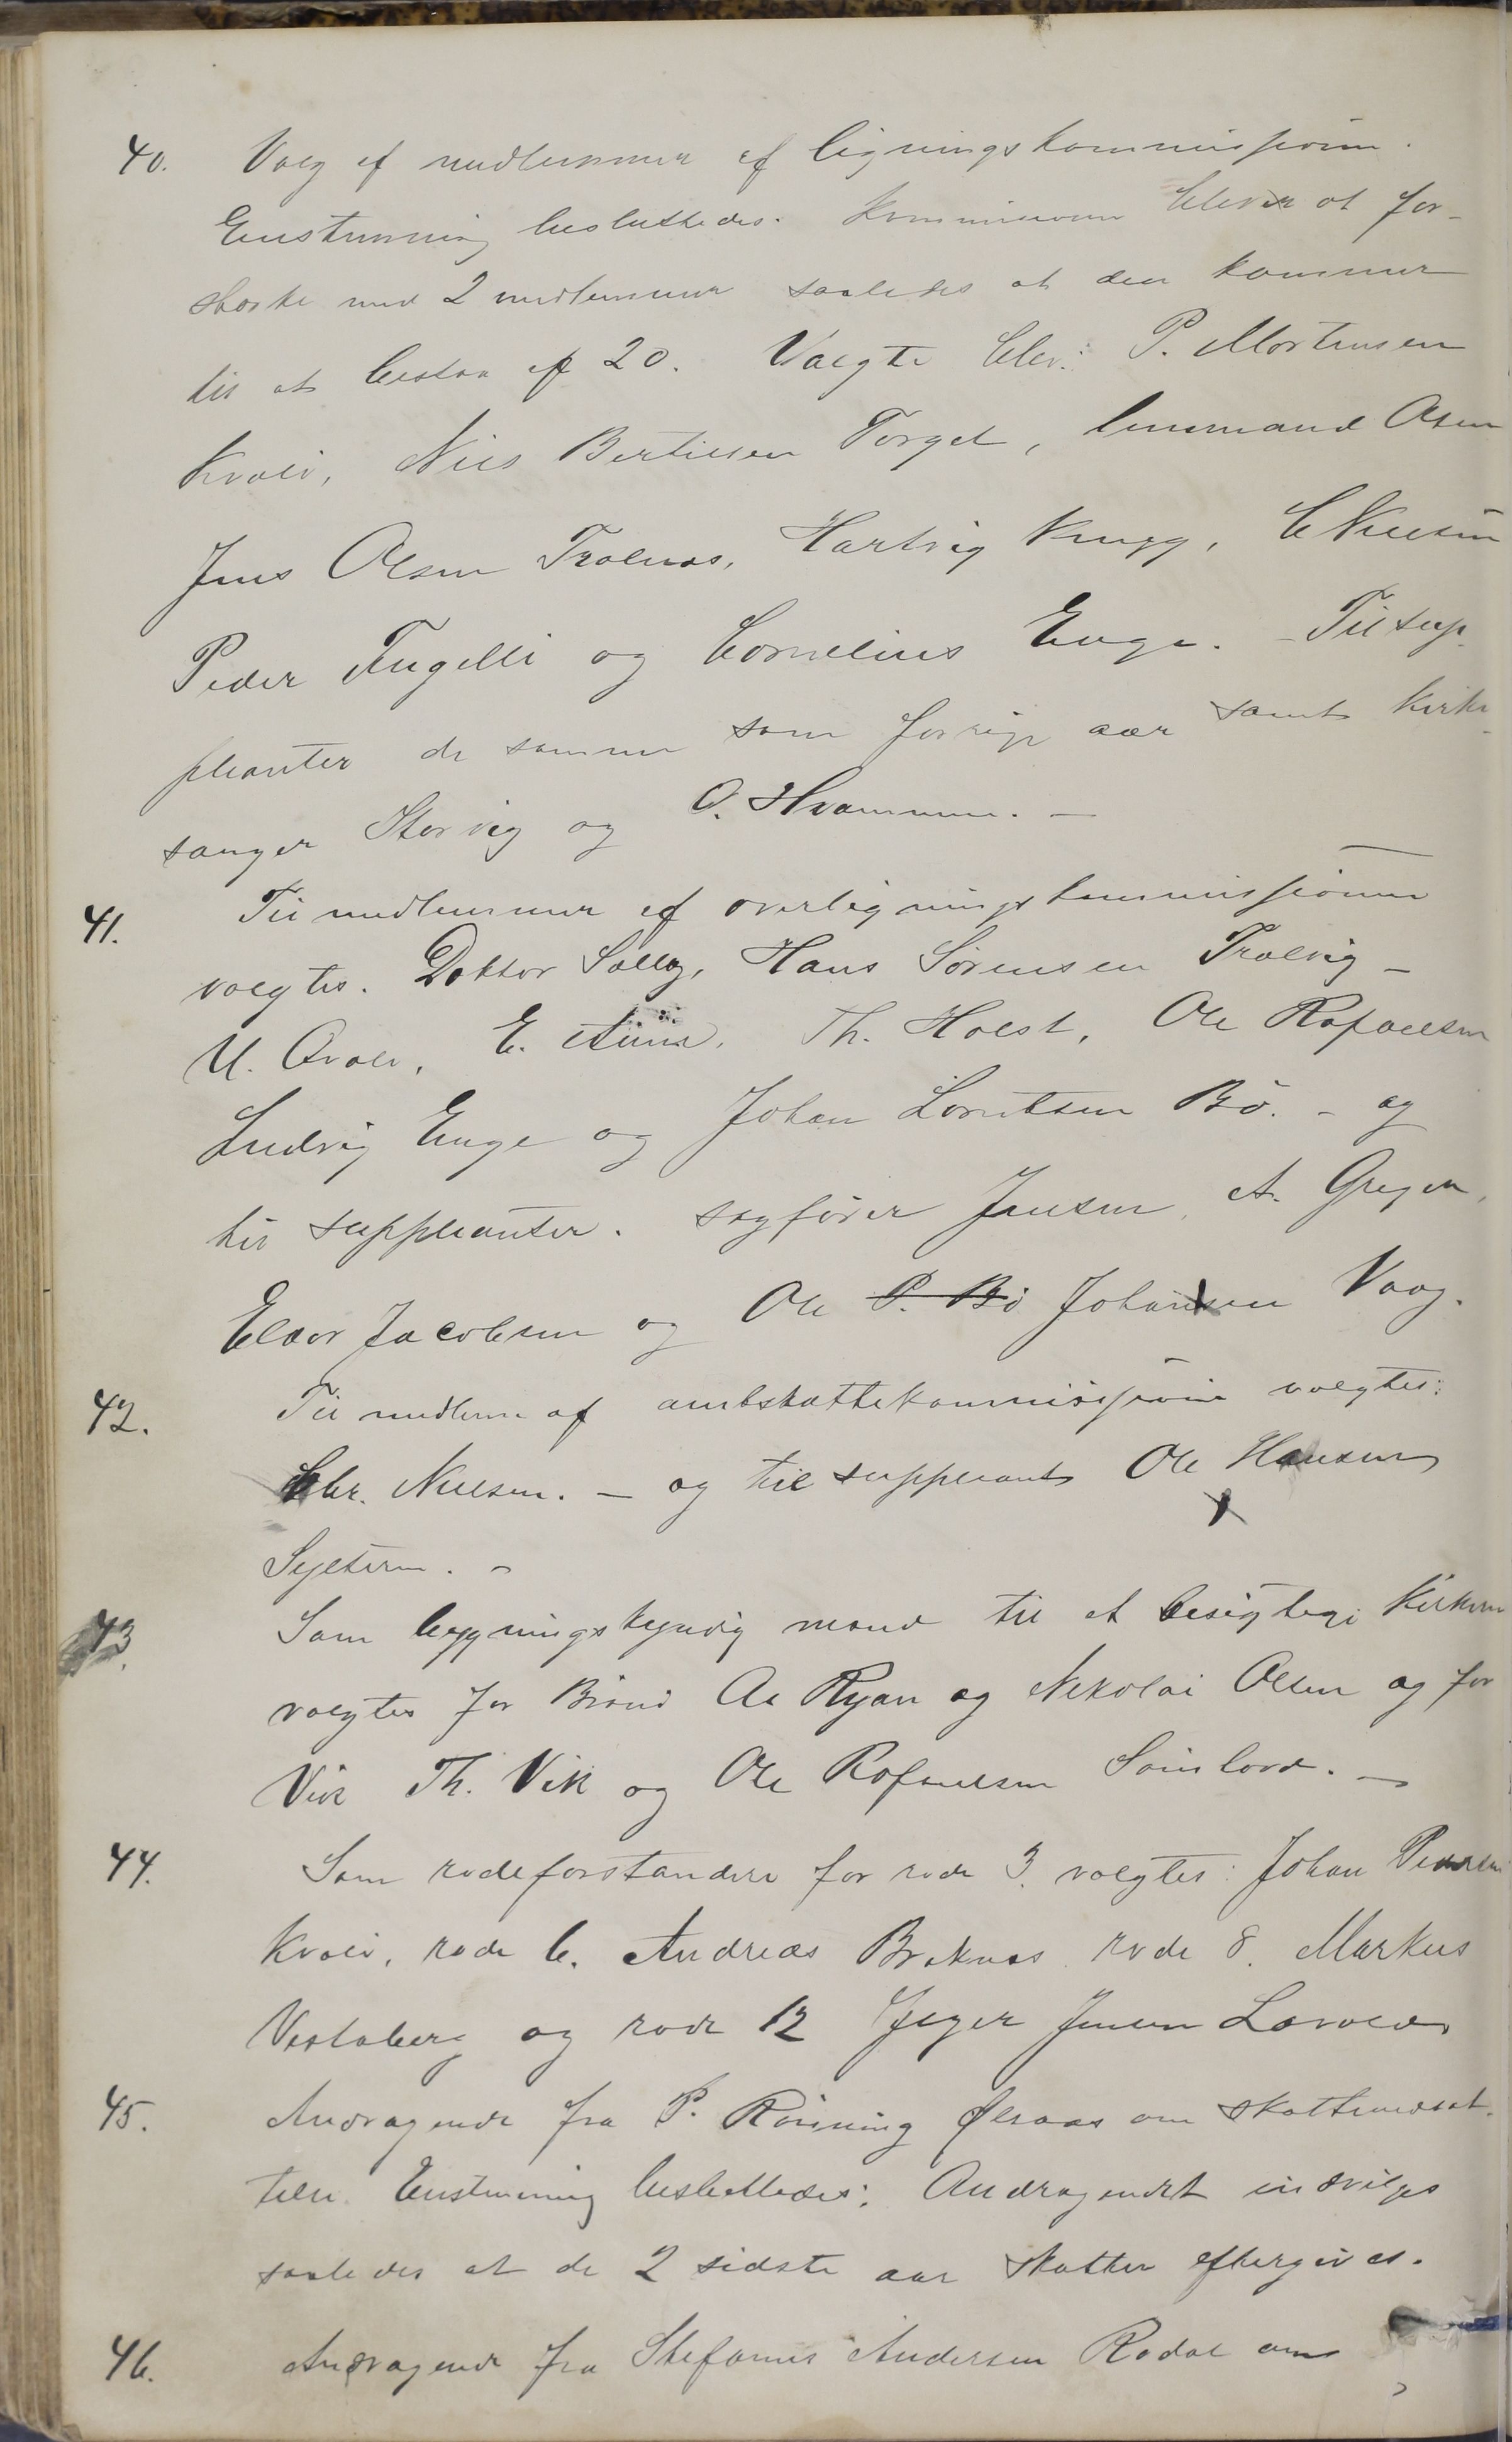 40. Valg af medlemmer af ligningskommissionen.
Enstemmig besluttedes. Kommissionen bliver at for-
stærke med 2 medlemmer saaledes at den kommer
til at bestaa af 20. Valgte blev: P. Mortensen
Kvalø, Nils Bertilsen Torget, lensmand Olsen
Jens Olsen Trælnæs, Hartvig Krugg, C Nielsen
Peder Fugelli og Cornelius Enge. - Til sup-
pleanter de samme som forrige aar samt kirke-
sanger Storvig og O. Hvammen. -
41. Til medlemmer af overligningskommissionen
valgtes. Doktor Solby, Hans Sørensen Trælvig -
U. Qvale, E. Aune, Th. Holst, Ole Rafaelsen
Ludvig Enge og Johan Lorntsen Bø. - og
til suppleanter. sagfører Jensen, A. Gregersen,
Elias Jacobsen og Ole P. Bø Johansen Vaag.
42. Til medlem af amtskattekommissionen valgtes:
Chr. Nielsen. - og til suppleant Ole Hansen
Sylteren. -
43. Som bygningskyndig mand til at besigtige kirken
valgtes for Brønø Aa Ryan og Nikolai Olsen og for
Vik Th. Vik og Ole Rafaelsen Sømlovd. -
44. Som rodeforstandere for rode 3. valgtes: Johan Pedersen
Kvalø, rode 6. Andreas Bræknæs rode 8. Markus
Vestaberg og rode 12 Jeger Jensen Larvold
45. Andragende fra P. Rønning om skattenedsæt-
telse. Enstemmig besluttedes: Andragendet indvilges
saaledes at de 2 sidste aar skatter eftergives.
46. Andragende fra Stefanus Andersen Rødal om